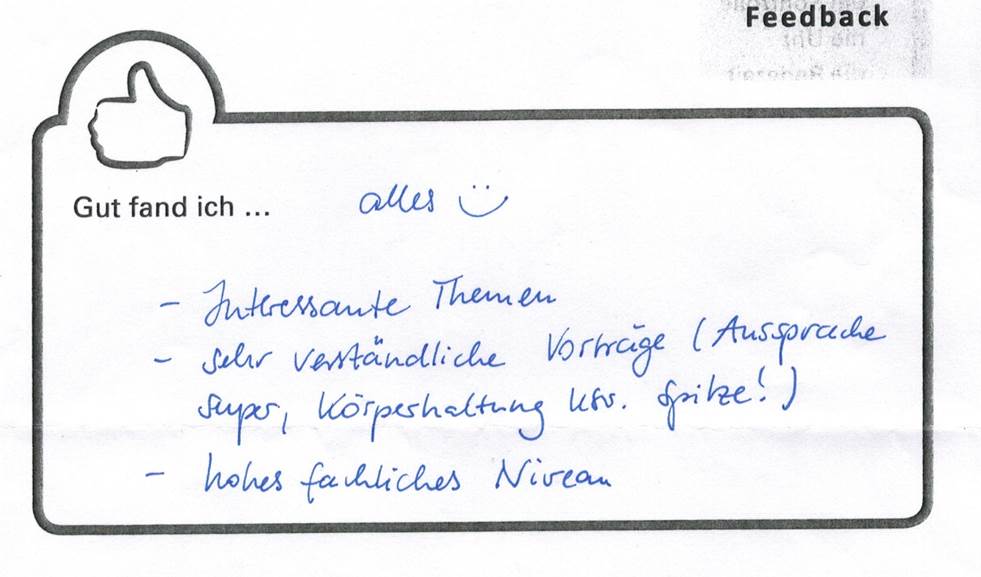 Feedback
Gut fand ich ... alles
- Interessante Themen
- sehr verständliche Vorträge (Aussprache
super, Körperhaltung usw. spitze!)
- hohes fachliches Niveau